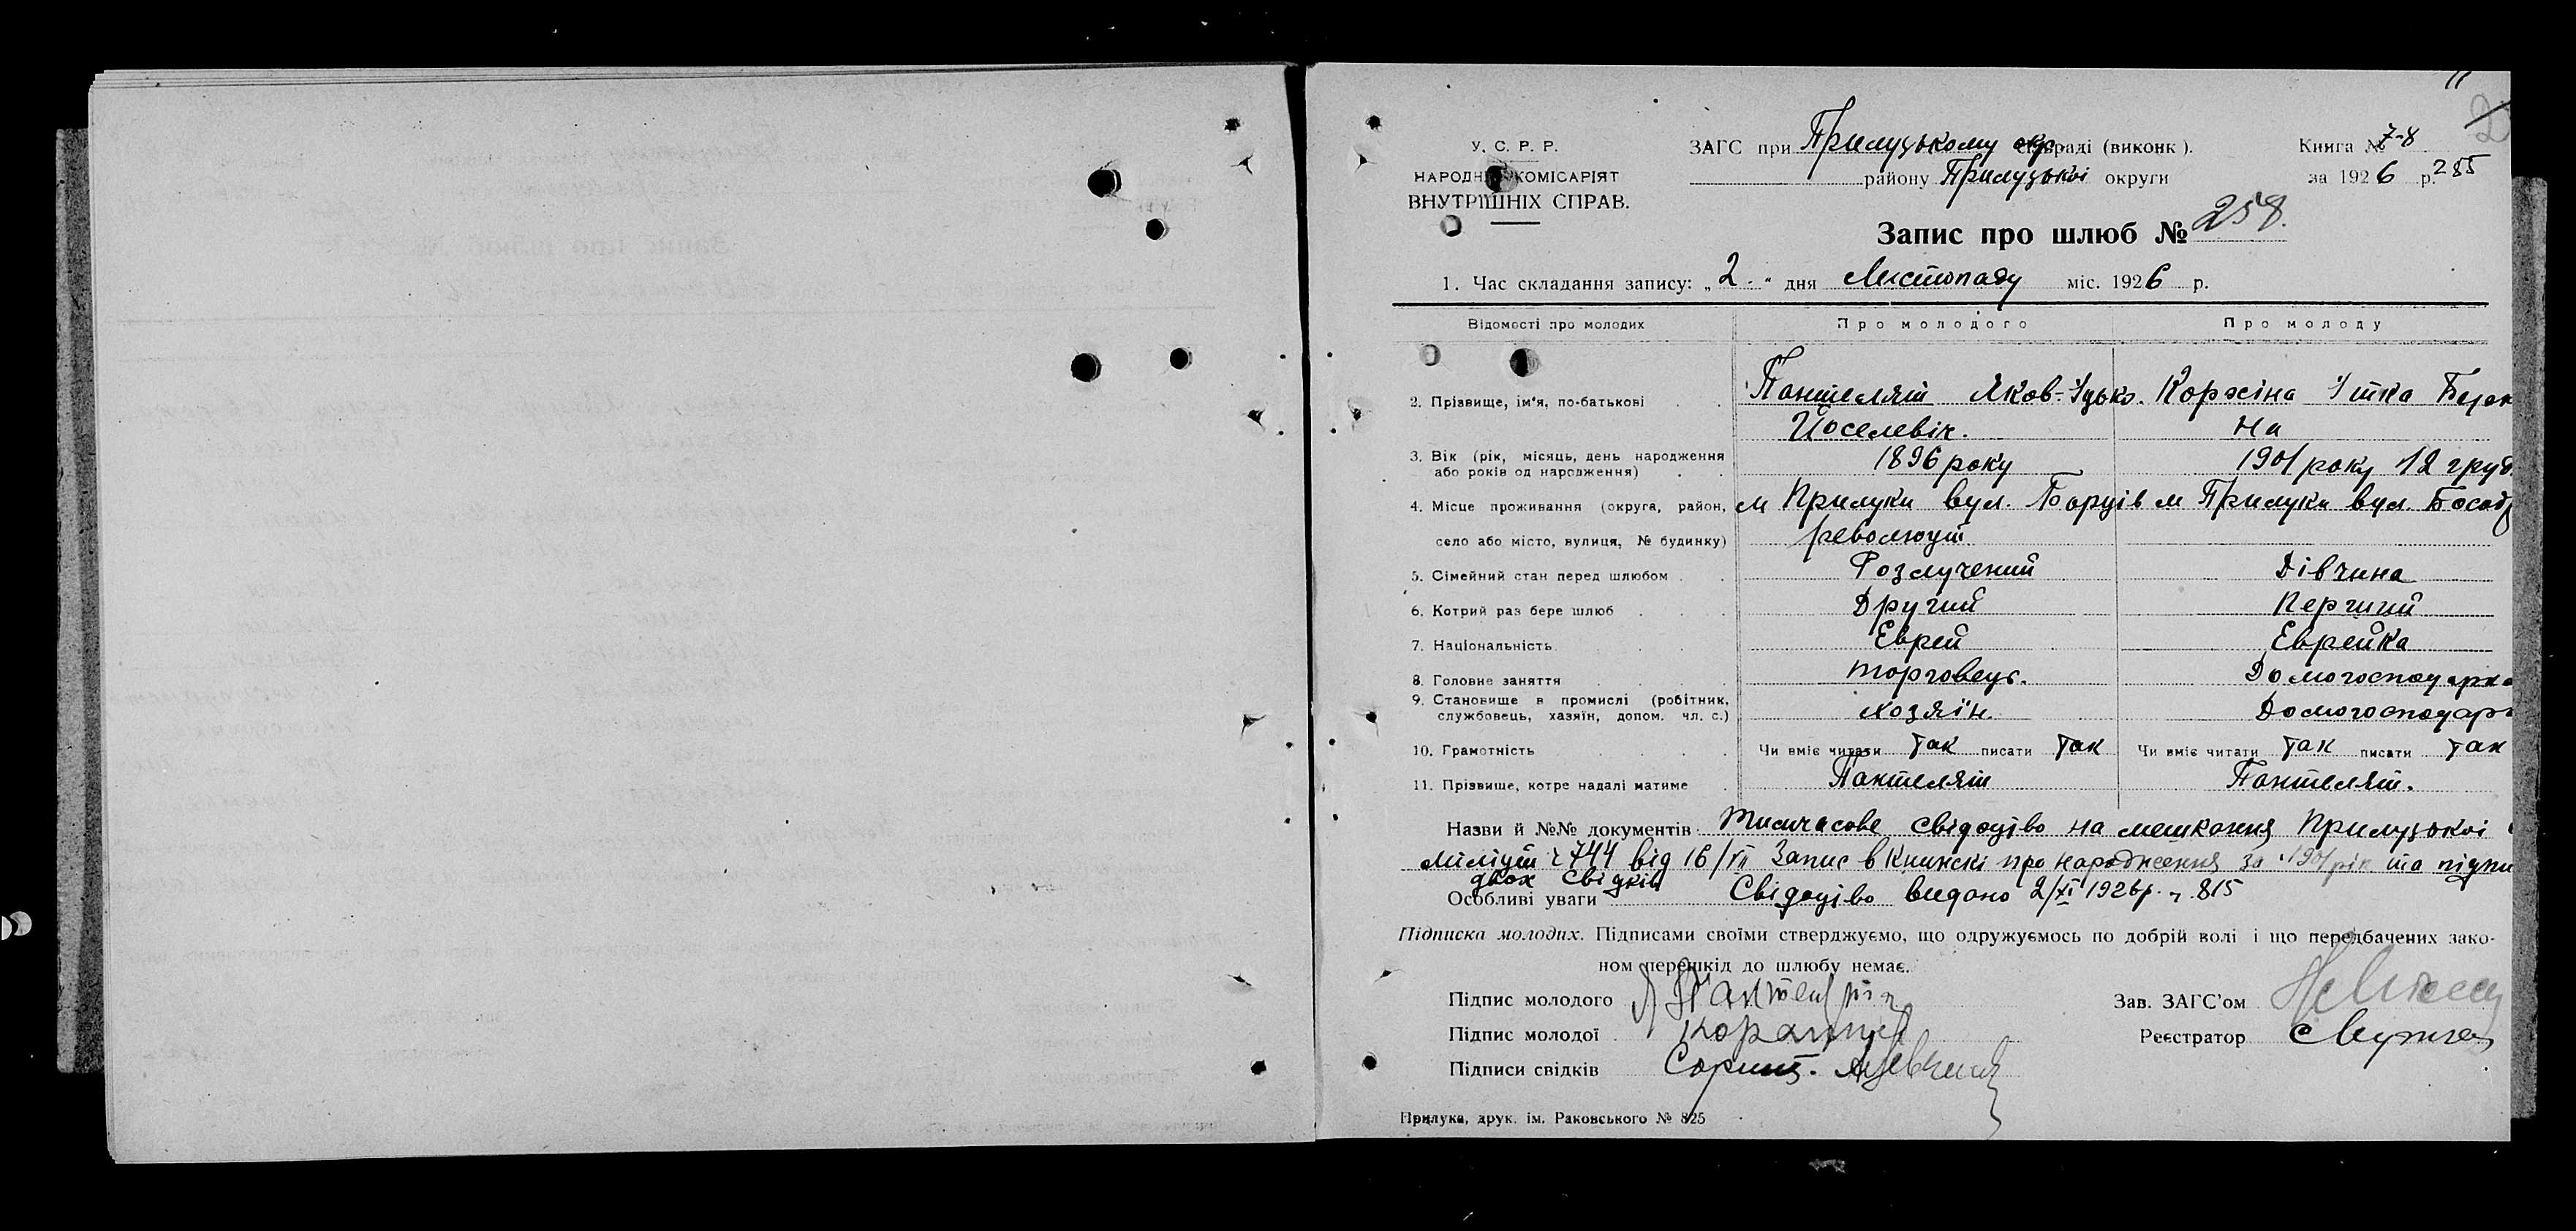 У. С. Р. Р.
НАРОДНИЙ КОМІСАРІЯТ
ВНУТРІШНІХ СПРАВ.
ЗАГС при Прилуцькому окр. раді (виконк ).
району Прилуцької округи
Книга № 7-8
за 1926 р. 285
Запис про шлюб № 258.
1. Час складання запису: „2.“ дня Листопаду міс. 1926 р.
Відомості про молодих Про молодого Про молоду
2. Прізвище, ім'я, по-батькові Пантелят Яков-Іцько. Коржіна Ітка Берк
Йоселевіч. на
3. Вік (рік, місяць, день народження 1896 року 1901 року 12 груд.
або років од народження)
4. Місце проживання (округа, район, м Прилуки вул. Борців м Прилуки вул.
село або місто, вулиця, № будинку) революції
5. Сімейний стан перед шлюбом Розлучений Дівчина
6. Котрий раз бере шлюб Другий Перший
7. Національність Еврей Еврейка
8. Головне заняття торговець. Домогосподарка
9. Становище в промислі (робітник, хозяїн. Домогосподар
службовець, хазяїн, допом. чл. с.)
10. Грамотність Чи вміє читати Так писати Так Чи вміє читати Так писати Так
11. Прізвище, котре надалі матиме Пантелят Пантелят.
Назви й №№ документів Тимчасове свідоцтво на мешкання Прилуцької
міліції 744 від 16/VII Запис в Книжкі про народження за 1901 рік та підпи
двох свідків
Особливі уваги Свідоцтво видано 2/XI 1926 р. ч. 815
Підписка молодих. Підписами своїми стверджуємо, що одружуємось по добрій волі і що передбачених зако-
ном перешкід до шлюбу немає.
Підпис молодого
Підпис молодої
Підписи свідків
Зав. ЗАГС'ом
Реєстратор
Прилука, друк. ім. Раковського № 825